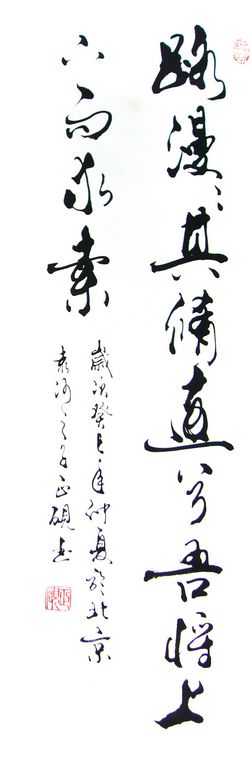 路漫漫其脩遠兮吾将上
下而求索
歲次癸巳年仲夏於北京
袁河之子正硯書